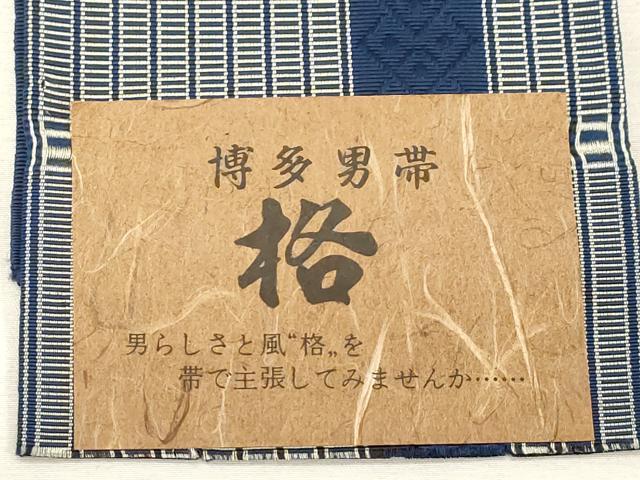 博多男帯
格
男らしさと風“格„を
帯で主張してみませんか……